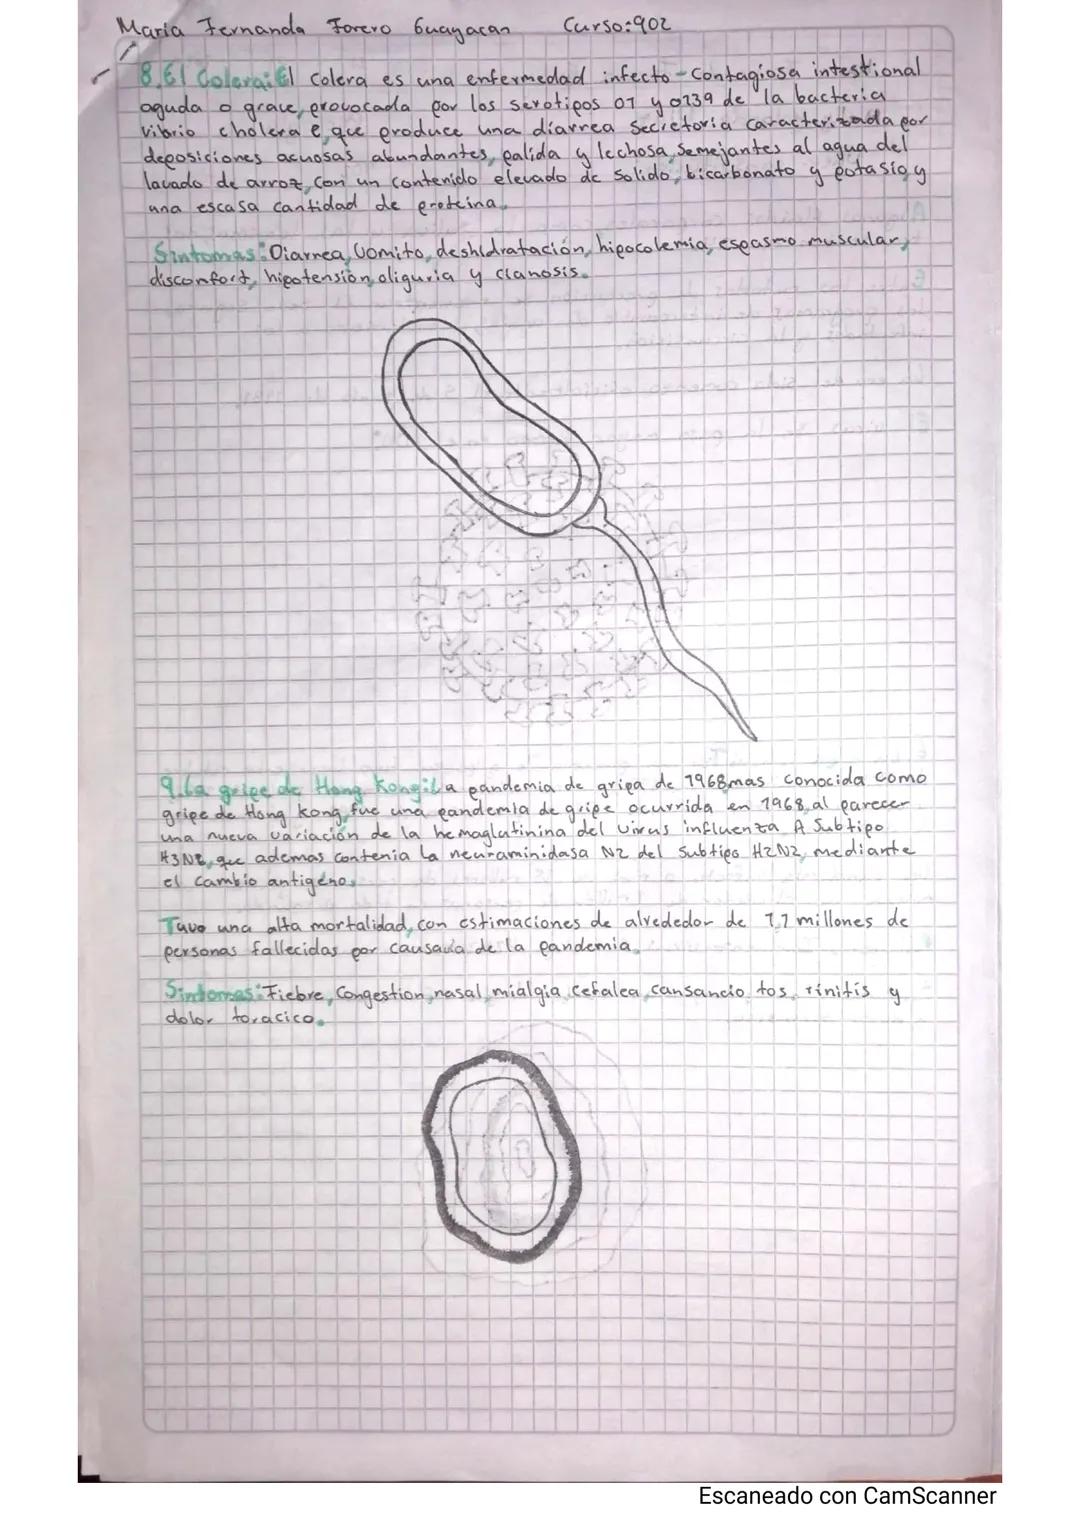 Maria Fernanda Forero Guayacan Curso:902
8.El Colera:El colera es una enfermedad infecto-contagiosa intestional
aguda o grave, provocada por los serotipos 01 y 0139 de la bacteria
vibrio cholera e, que produce una diarrea secretoria caracterizada por
deposiciones acuosas abundantes, palida y lechosa, semejantes al agua del
lavado de arroz, con un contenido elevado de solido, bicarbonato y potasio, y
una escasa cantidad de proteina.
Sintomas: Diarrea, Vomito, deshidratación, hipocalemia, espasmo muscular,
disconfort, hipotensión, oliguria y cianosis.
9.La gripe de Hong Kong:La pandemia de gripa de 1968, mas conocida como
gripe de Hong Kong, fue una pandemia de gripe ocurrida en 1968, al parecer
una nueva variación de la hemaglutinina del virus influenza A Subtipo
H3N2, que ademas contenia la neuraminidasa N2 del subtipo H2N2, mediante
el cambio antigéno.
Tuvo una alta mortalidad, con estimaciones de alrededor de 1,1 millones de
personas fallecidas por de la pandemia.
Sintomas: Fiebre, Congestion, nasal, mialgia, cefalea, cansancio, tos, rinitis y
dolor toracico.
Escaneado con CamScanner